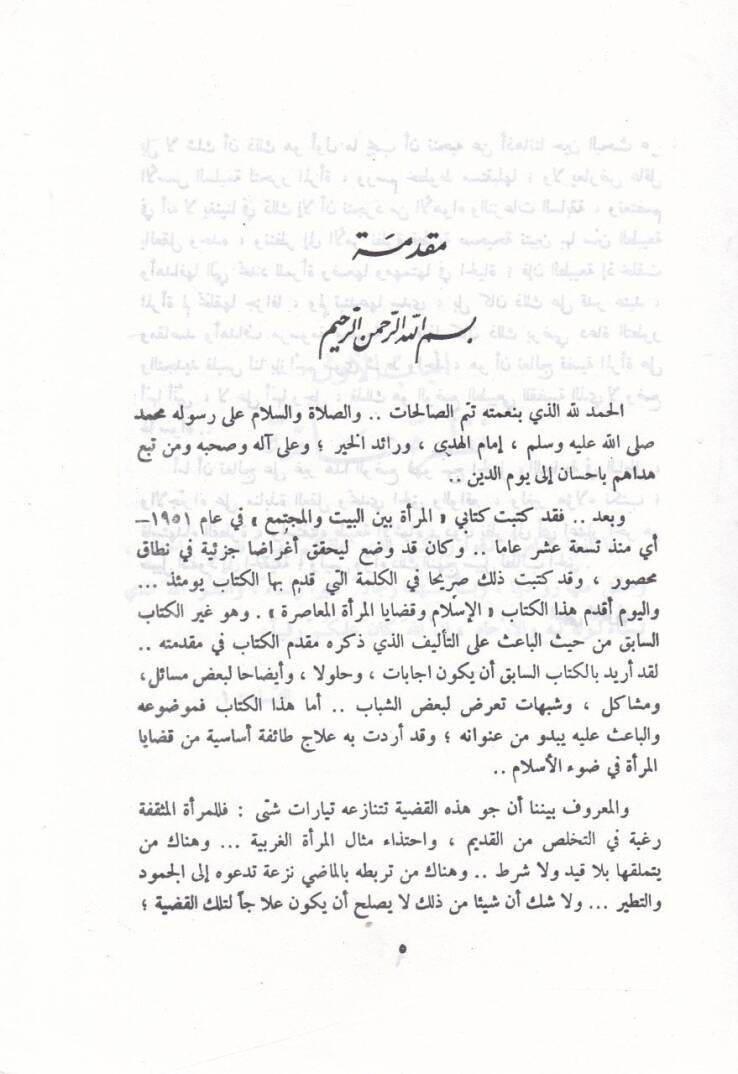 مقدمة
بسم الله الرحمن الرحيم
الحمد لله الذي بنعمته تتم الصالحات .. والصلاة والسلام على رسوله محمد
صلى الله عليه وسلم ، إمام الهدى ، ورائد الخير ؛ وعلى آله وصحبه ومن تبع
هداهم باحسان إلى يوم الدين ..
وبعد .. فقد كتبت كتابي « المرأة بين البيت والمجتمع » في عام ١٩٥١ –
أي منذ تسعة عشر عاما .. وكان قد وضع ليحقق أغراضا جزئية في نطاق
محصور ، وقد كتبت ذلك صريحا في الكلمة التي قدم بها الكتاب يومئذ ...
واليوم أقدم هذا الكتاب « الإسلام وقضايا المرأة المعاصرة » . وهو غير الكتاب
السابق من حيث الباعث على التأليف الذي ذكره مقدم الكتاب في مقدمته ..
لقد أريد بالكتاب السابق أن يكون اجابات ، وحلولا ، وأيضاحا لبعض مسائل،
ومشاكل ، وشبهات تعرض لبعض الشباب .. أما هذا الكتاب فموضوعه
والباعث عليه يبدو من عنوانه ؛ وقد أردت به علاج طائفة أساسية من قضايا
المرأة في ضوء الأسلام ..
والمعروف بيننا أن جو هذه القضية تتنازعه تيارات شتّى : فللمرأة المثقفة
رغبة في التخلص من القديم ، واحتذاء مثال المرأة الغربية ... وهناك من
يتملقها بلا قيد ولا شرط .. وهناك من تربطه بالماضي نزعة تدعوه إلى الجمود
والتطير ... ولا شك أن شيئا من ذلك لا يصلح أن يكون علاجاً لتلك القضية ؛
٥